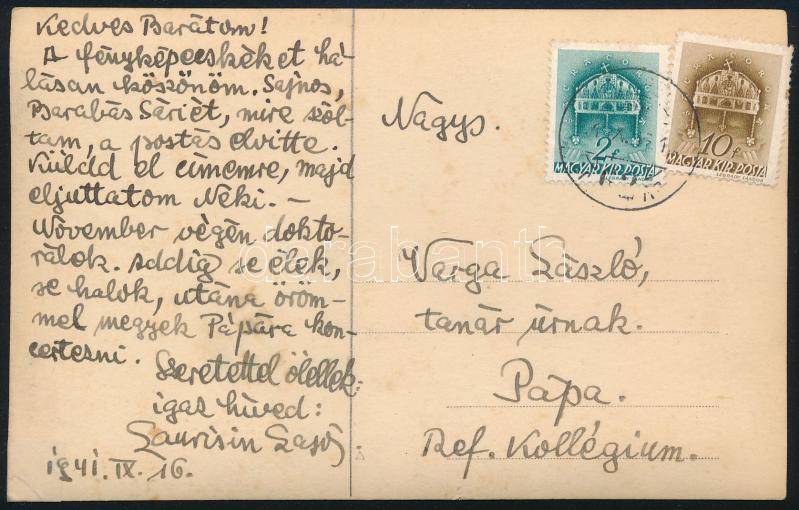 Kedves Barátom!
A fényképecskéket há-
lásan köszönöm. Sajnos,
Barabás Sáriét, mire szól-
tam, a postás elvitte.
Küldd el címemre, majd
eljuttatom Néki. –
November végén dokto-
rálok. Addig se élek,
se halok, utána öröm-
mel megyek Pápára kon-
certezni.
Szeretettel ölellek:
igaz híved:
Laurisin Lajos
1941. IX. 16.
Nagys.
Varga László,
tanár úrnak.
Pápa.
Ref. Kollégium.
2f
MAGYAR KIR. POSTA
10f
MAGYAR KIR. POSTA
darabanth